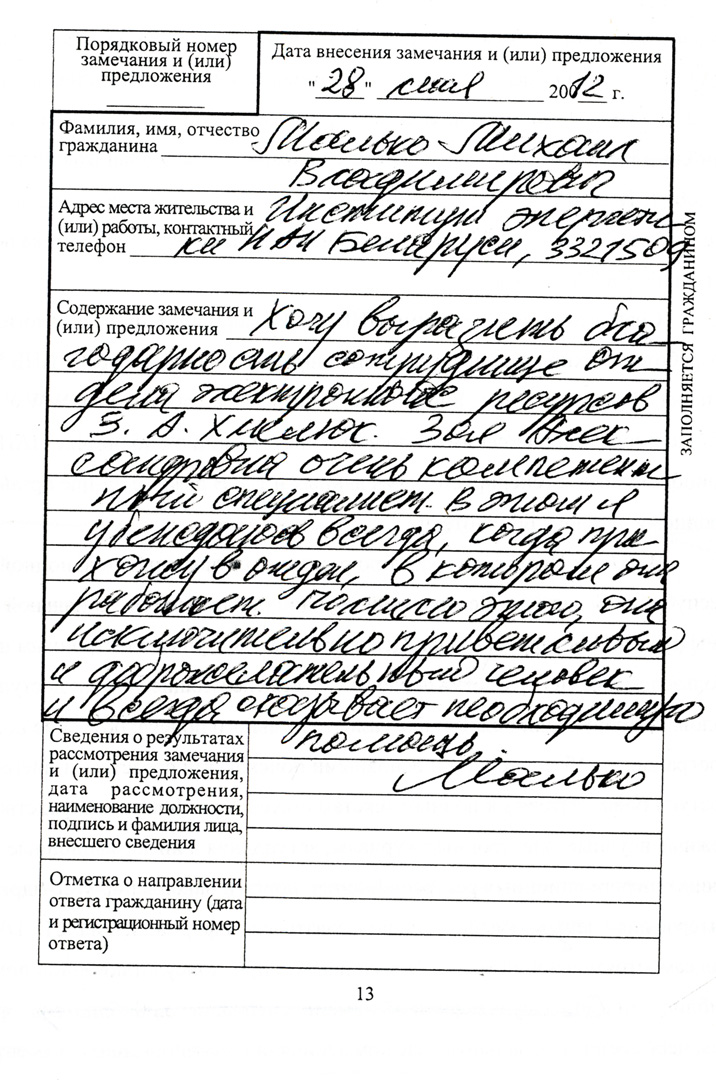 Порядковый номер
замечания и (или)
предложения
Дата внесения замечания и (или) предложения
"28" мая 2012 г.
Фамилия, имя, отчество
гражданина Малько Михаил
Владимирович
Адрес места жительства и
(или) работы, контактный
телефон
Институт энергети-
ки НАН Беларуси, 3321509
Содержание замечания и
(или) предложения Хочу выразить бла-
годарность сотруднице от-
дела электронных ресурсов
З. А. Зоя Алек-
сандровна очень компетент-
ный специалист. В этом я
убеждаюсь всегда, когда при-
хожу в отдел, в котором она
работает. Помимо этого, она
исключительно приветливый
и доброжелательный человек
и всегда оказывает необходимую
помощь.
Малько
ЗАПОЛНЯЕТСЯ ГРАЖДАНИНОМ
Сведения о результатах
рассмотрения замечания
и (или) предложения,
дата рассмотрения,
наименование должности,
подпись и фамилия лица,
внесшего сведения
Отметка о направлении
ответа гражданину (дата
и регистрационный номер
ответа)
13